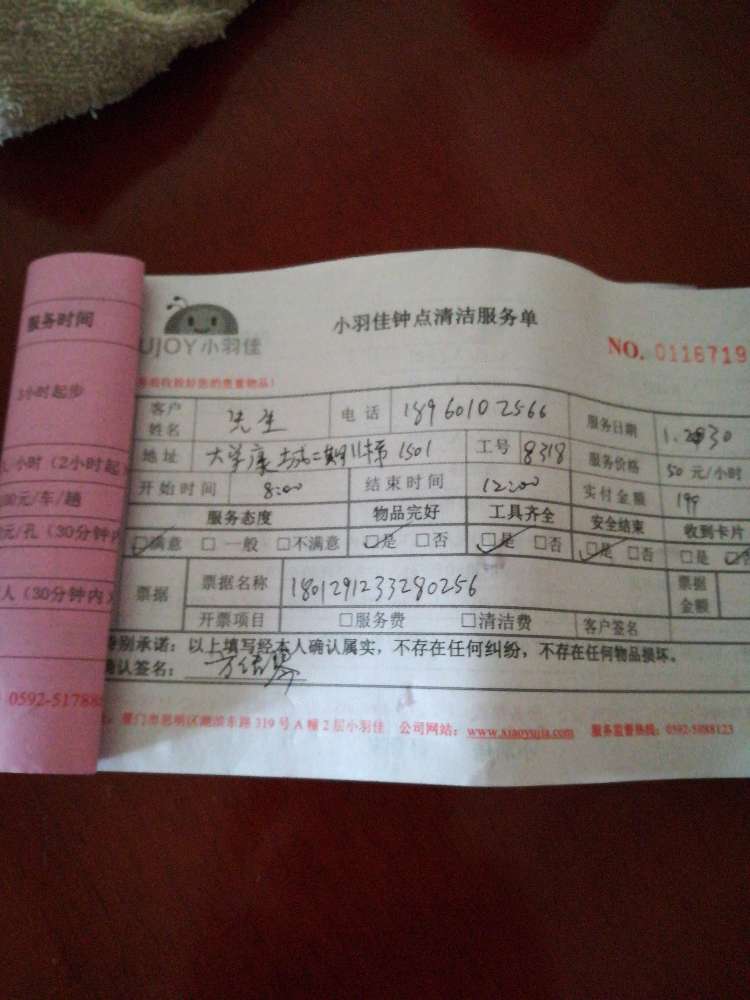 服务时间
小时起步
小时(2小时起
元/车/趟
元/孔(30分钟内
人(30分钟内)
0592-51788
UJOY小羽佳
小羽佳钟点清洁服务单
NO. 0116719
客户姓名 先生 电话 18960102566 服务日期
地址 大学康城二期 1501 工号 8318 服务价格 50元/小时
开始时间 8:00 结束时间 12:00 实付金额 199
服务态度 物品完好 工具齐全 安全结束 收到卡片
☑满意 □一般 □不满意 ☑是 □否 ☑是 □否 ☑是 □否 □是
票据 票据名称 1801291233280256 票据金额
开票项目 □服务费 □清洁费 客户签名
特别承诺:以上填写经本人确认属实,不存在任何纠纷,不存在任何物品损坏。
确认签名:
厦门市思明区湖滨东路319号A幢2层小羽佳 公司网站:www.xiaoyujia.com 服务监督热线:0592-5088123